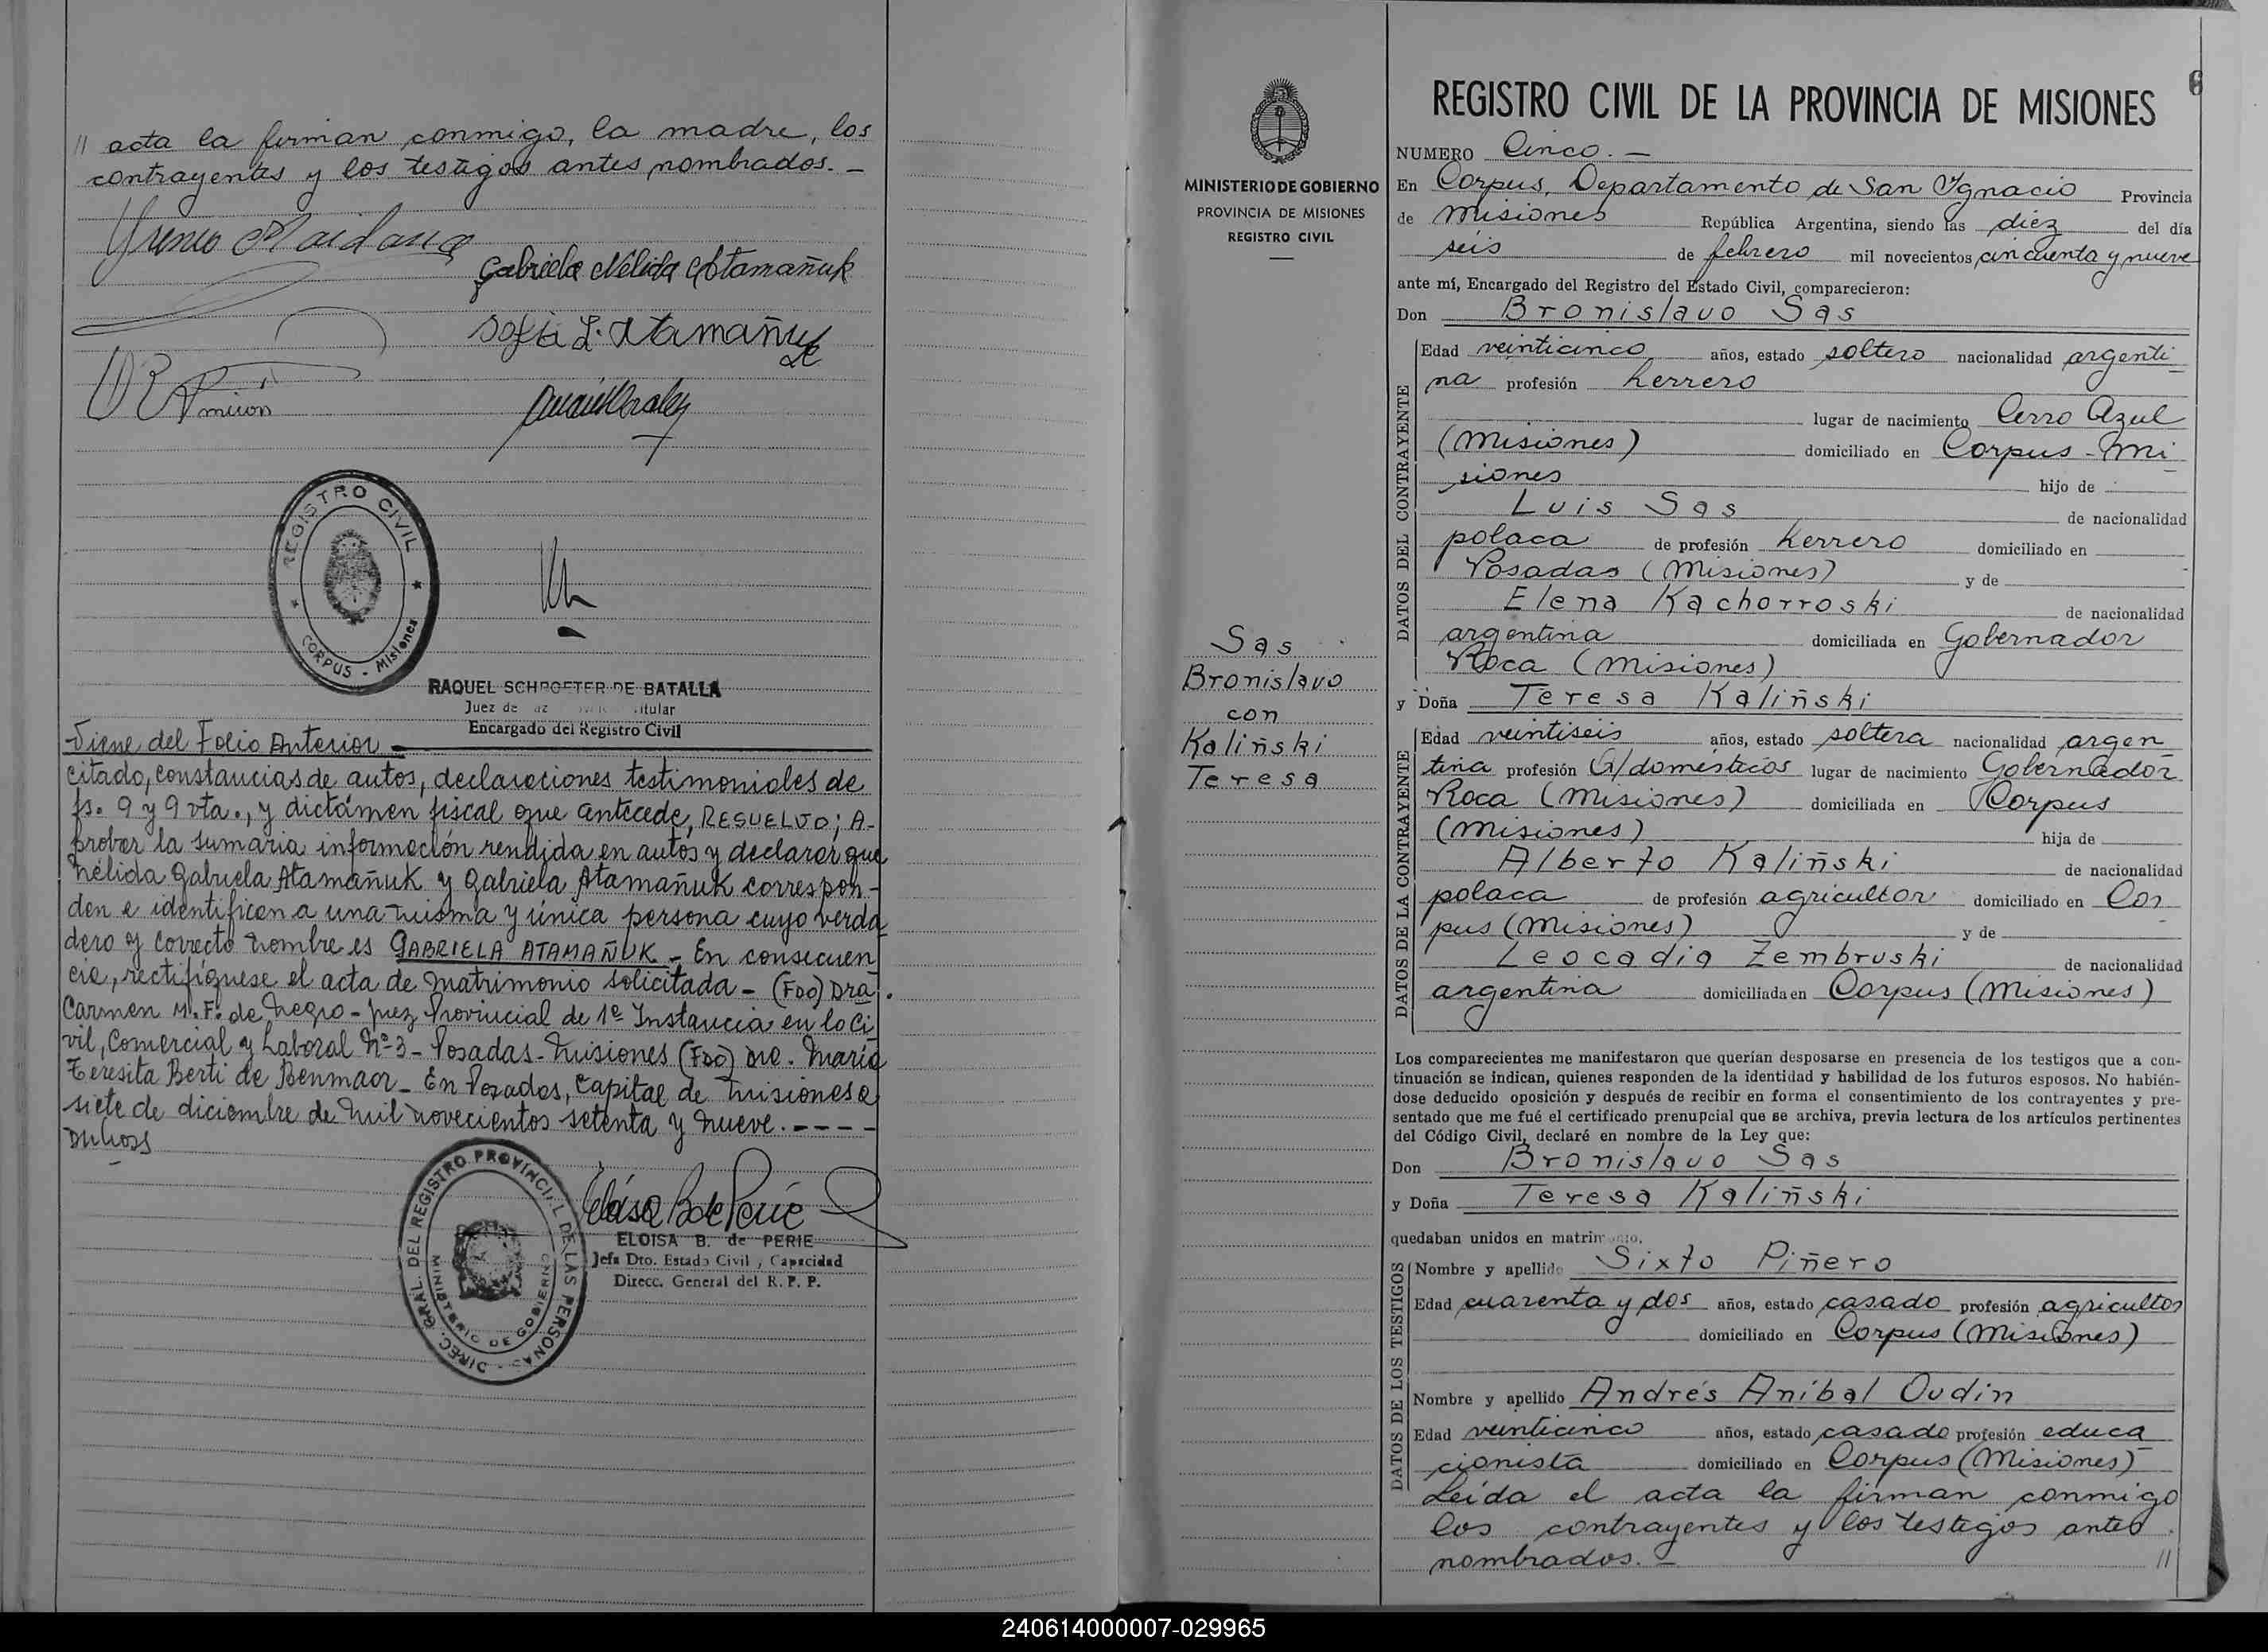 // acta la firman conmigo, la madre, los
contrayentes y los testigos antes nombrados. -
Gabriela Nélida Atamañuk
Sofia L. Atamañuk
REGISTRO CIVIL
CORPUS - Misiones
RAQUEL SCHROETER DE BATALLA
Juez de Paz Titular
Encargado del Registro Civil
Viene del Folio Anterior
citado, constancias de autos, declaraciones testimoniales de
fs. 9 y 9 vta., y dictámen fiscal que antecede, RESUELVO; A-
probar la sumaria información rendida en autos y declarar que
Nélida Gabriela Atamañuk y Gabriela Atamañuk correspon-
den e identifican a una misma y única persona cuyo verda
dero y correcto nombre es GABRIELA ATAMAÑUK - En consecuen
cia, rectifíquese el acta de matrimonio solicitada - (FDO) Dra.
Carmen M. F. de Negro - Juez Provincial de 1º Instancia en lo Ci
vil, Comercial y Laboral Nº 3 - Posadas - Misiones (FDO) Dra. María
Teresita Berti de Benmaor - En Posadas, Capital de Misiones a
siete de diciembre de mil novecientos setenta y nueve. - - - -
DIREC. GRAL. DEL REGISTRO PROVINCIAL DE LAS PERSONAS
MINISTERIO DE GOBIERNO
Eloisa B de Perié
ELOISA B. de PERIE
Jefa Dto. Estado Civil y Capacidad
Direcc. General del R. P. P.
6
MINISTERIO DE GOBIERNO
PROVINCIA DE MISIONES
REGISTRO CIVIL
Sas
Bronislavo
con
Kaliñski
Teresa
REGISTRO CIVIL DE LA PROVINCIA DE MISIONES
NUMERO Cinco. -
En Corpus, Departamento de San Ignacio Provincia
de Misiones República Argentina, siendo las diez del día
seis de febrero mil novecientos cincuenta y nueve
ante mí, Encargado del Registro del Estado Civil, comparecieron:
Don Bronislavo Sas
DATOS DEL CONTRAYENTE
Edad veinticinco años, estado soltero nacionalidad argenti
na profesión herrero
lugar de nacimiento Cerro Azul
(Misiones) domiciliado en Corpus - Mi
siones hijo de
Luis Sas de nacionalidad
polaca de profesión herrero domiciliado en
Posadas (Misiones) y de
Elena Kachorroski de nacionalidad
argentina domiciliada en Gobernador
Roca (Misiones)
y Doña Teresa Kaliñski
DATOS DE LA CONTRAYENTE
Edad veintiseis años, estado soltera nacionalidad argen
tina profesión Q/domésticos lugar de nacimiento Gobernador
Roca (Misiones) domiciliada en Corpus
(Misiones) hija de
Alberto Kaliñski de nacionalidad
polaca de profesión agricultor domiciliado en Cor
pus (Misiones) y de
Leocadia Zembruski de nacionalidad
argentina domiciliada en Corpus (Misiones)
Los comparecientes me manifestaron que querían desposarse en presencia de los testigos que a con-
tinuación se indican, quienes responden de la identidad y habilidad de los futuros esposos. No habién-
dose deducido oposición y después de recibir en forma el consentimiento de los contrayentes y pre-
sentado que me fué el certificado prenupcial que se archiva, previa lectura de los artículos pertinentes
del Código Civil, declaré en nombre de la Ley que:
Don Bronislavo Sas
y Doña Teresa Kaliñski
quedaban unidos en matrimonio.
DATOS DE LOS TESTIGOS
Nombre y apellido Sixto Piñero
Edad cuarenta y dos años, estado casado profesión agricultor
domiciliado en Corpus (Misiones)
Nombre y apellido Andrés Aníbal Oudin
Edad veinticinco años, estado casado profesión educa
cionista domiciliado en Corpus (Misiones)
Leída el acta la firman conmigo
los contrayentes y los testigos antes
nombrados. - //
240614000007-029965